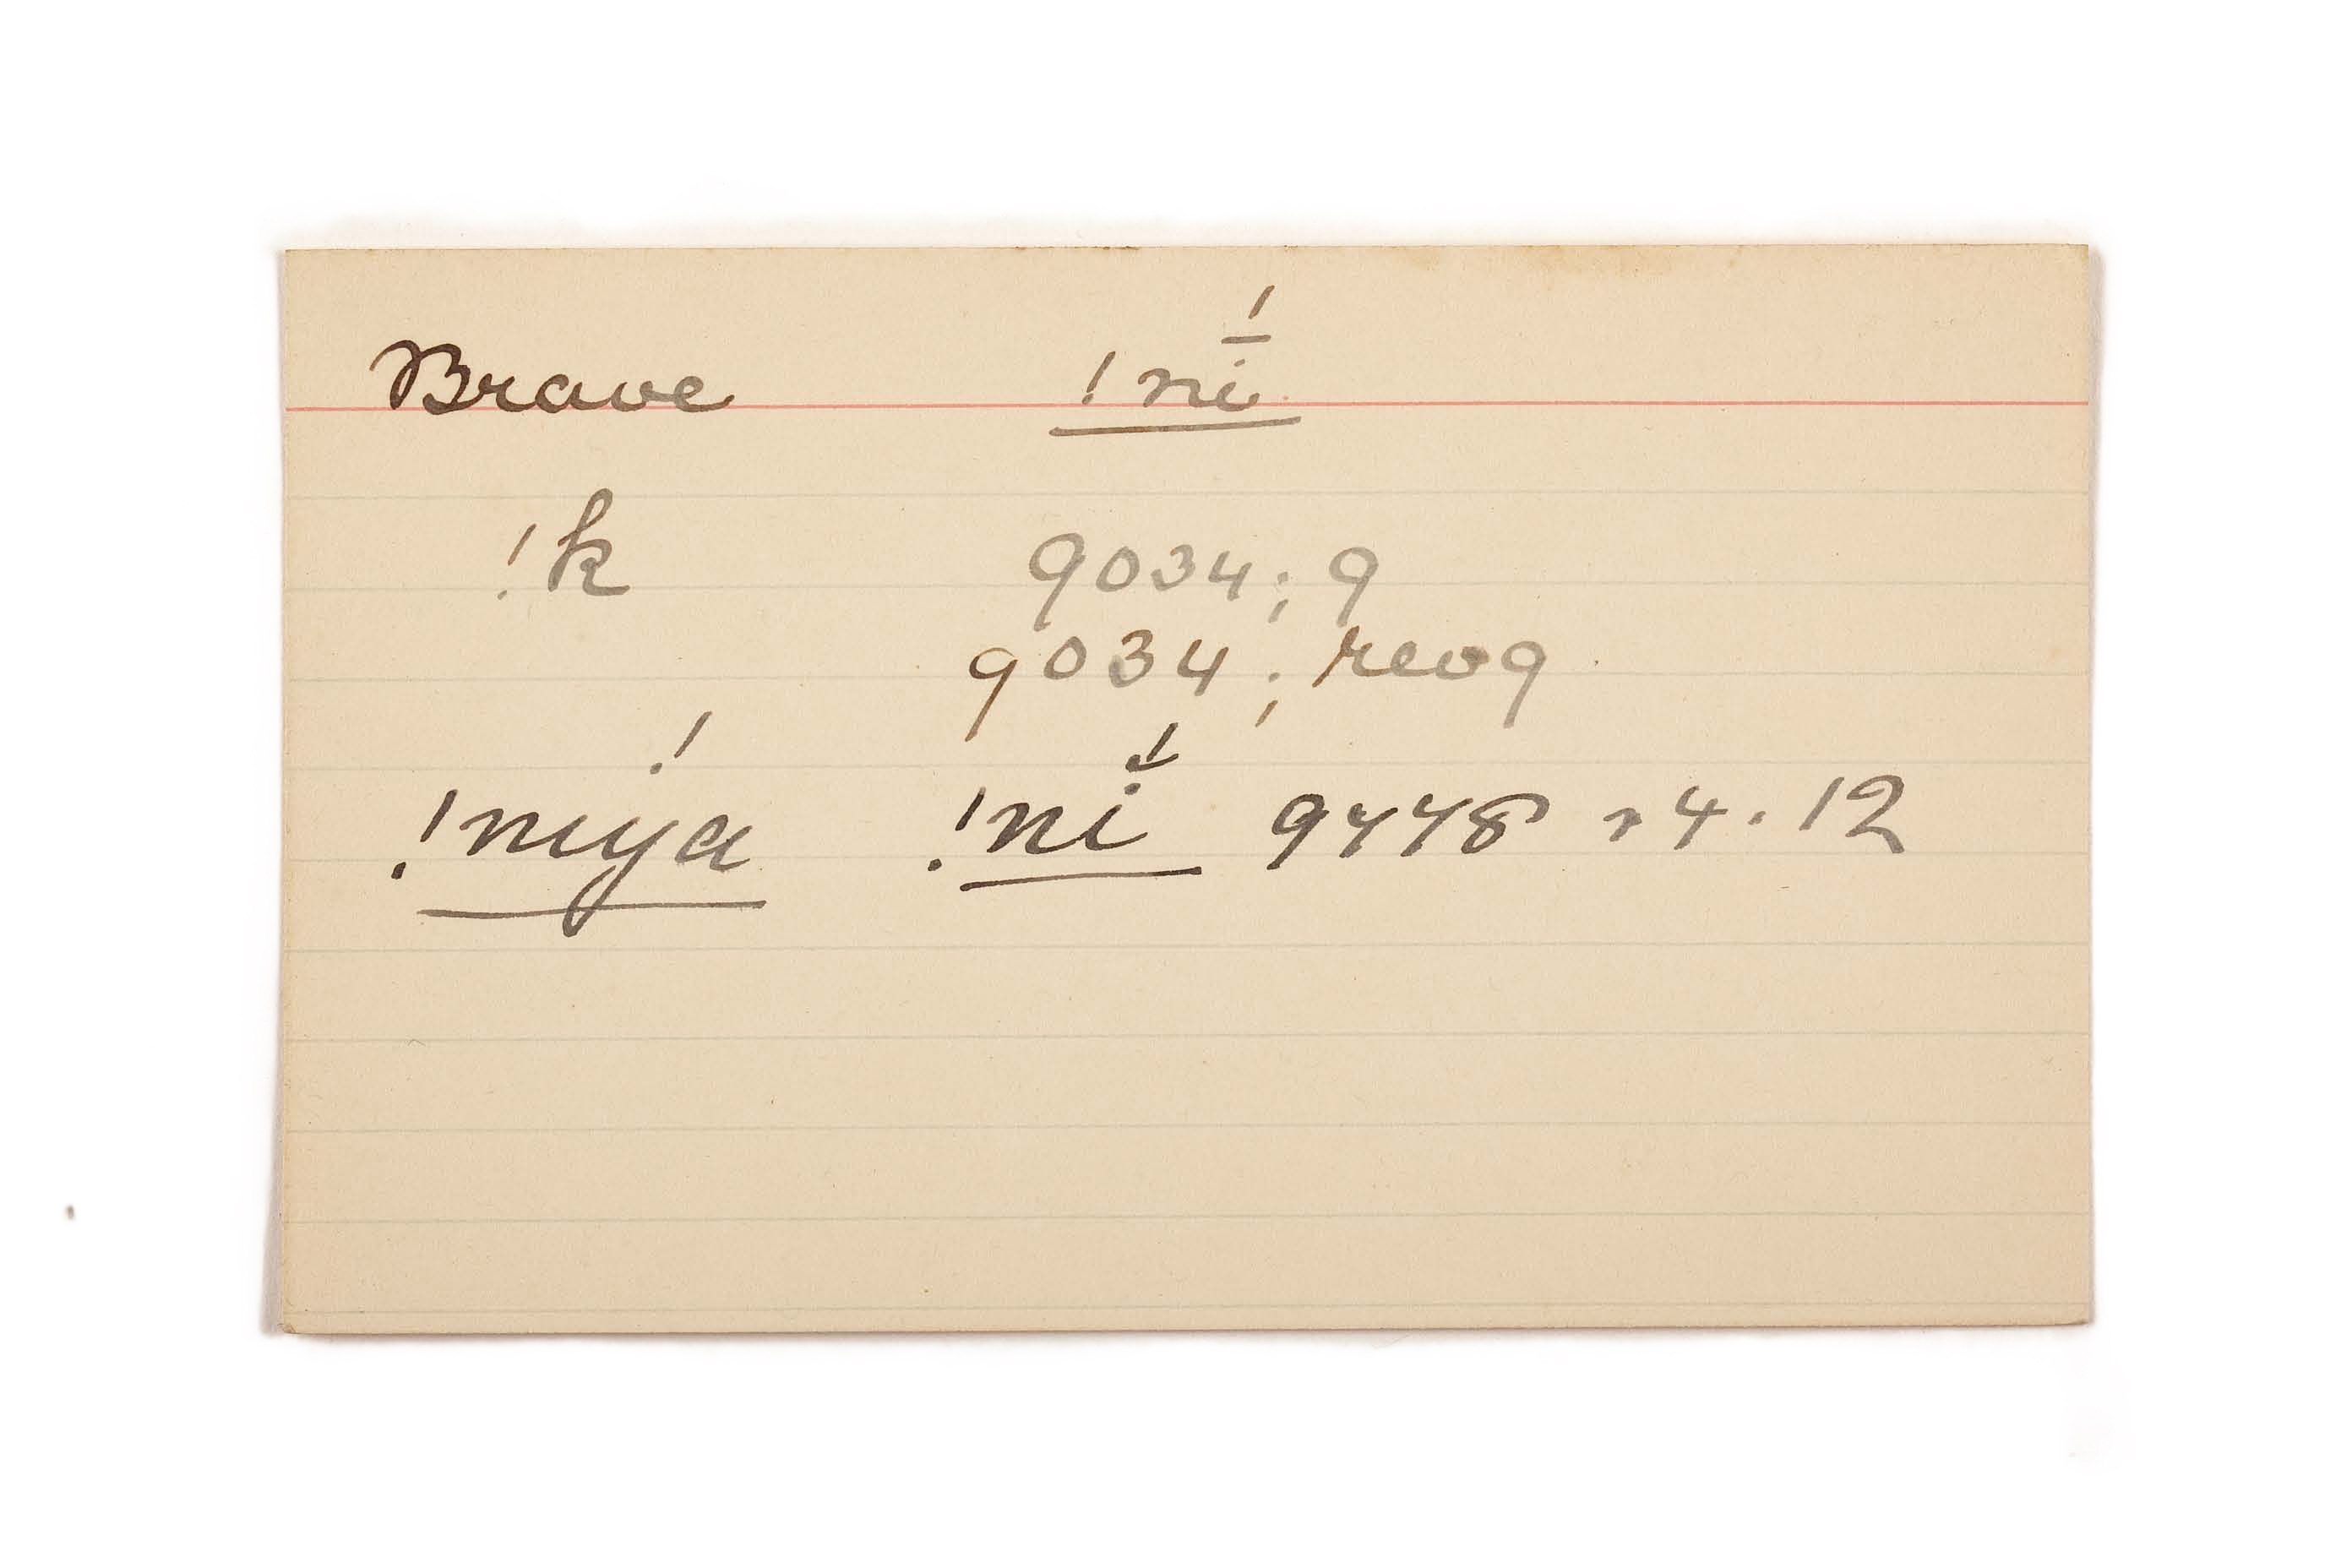 Brave !nī́
!k 9034; 9
9034; rev 9
!níya !nī́ 9448 r 4. 12